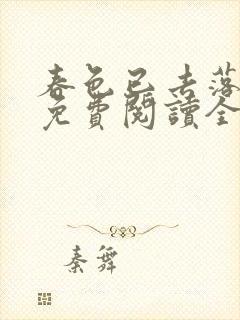 春色已去落
免費閱讀全
秦舞